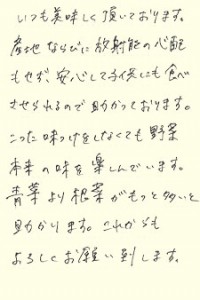 いつも美味しく頂いております。
産地ならびに放射能の心配
もせず、安心して子供にも食べ
させられるので助かっております。
こった味つけをしなくても野菜
本来の味を楽しんでいます。
青菜より根菜がもっと多いと
助かります。これからも
よろしくお願い致します。